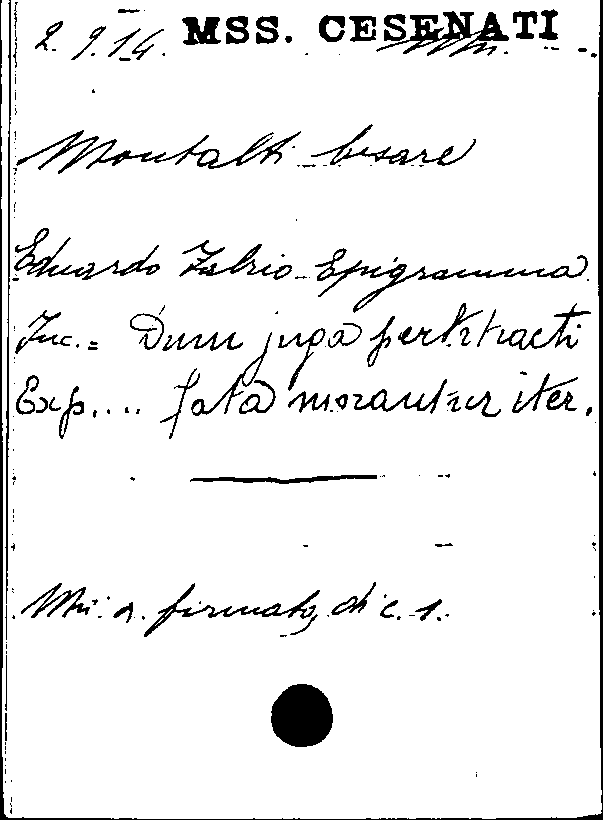 2. 9. 14. MSS. CESENATI
Montalti Cesare
Eduardo Fabrio Epigramma
Inc. = Dum juga pertrtracti
Exp. ... fata morantur iter.
Mn. a. firmato, di c. 1.